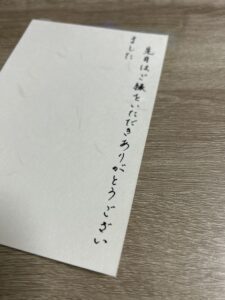 先日はご縁をいただきありがとうござい
ました